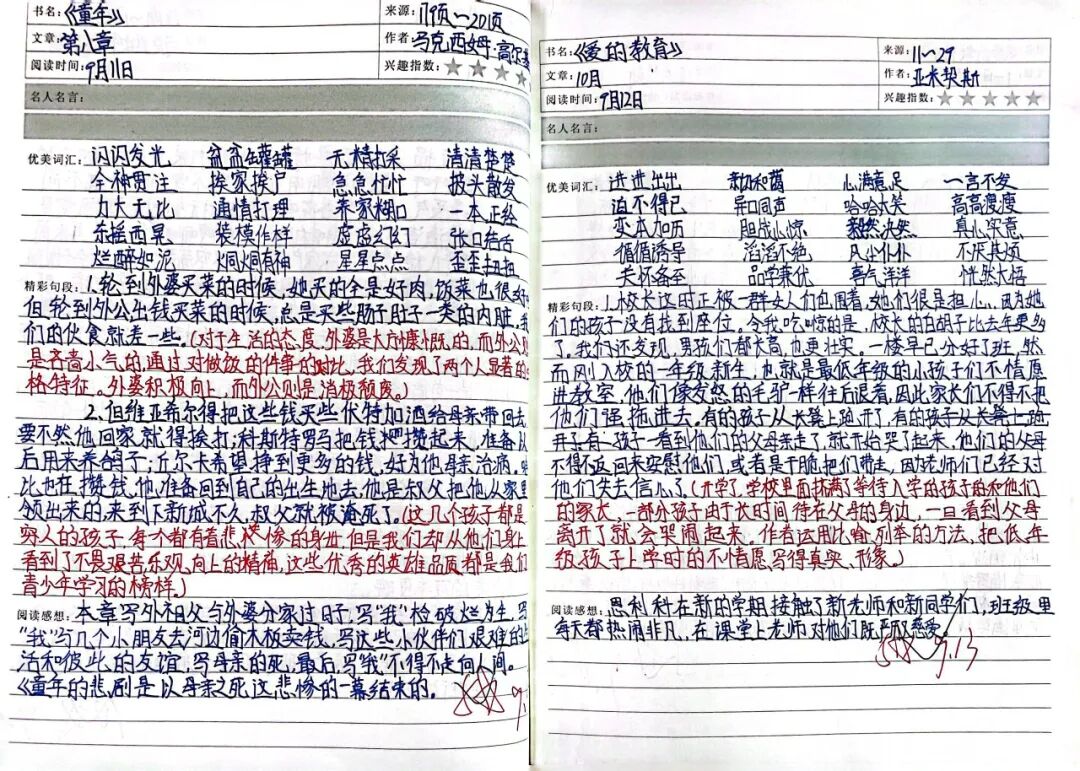 书名:《童年》 来源:179页~201页
文章:第八章 作者:马克西姆·高尔基
阅读时间:9月11日 兴趣指数:
名人名言:
优美词汇: 闪闪发光 盆盆罐罐 无精打采 清清楚楚
全神贯注 挨家挨户 急急忙忙 披头散发
力大无比 通情打理 养家糊口 一本正经
东摇西晃 装模作样 虚虚幻幻 张口结舌
烂醉如泥 炯炯有神 星星点点 歪歪扭扭
精彩句段: 1.轮到外婆买菜的时候,她买的全是好肉,饭菜也很好
但轮到外公出钱买菜的时候,总是买些肠子肚子一类的内脏。我
们的伙食就差一些。(对于生活的态度,外婆是大方慷慨的,而外公则
是吝啬小气的,通过对做饭的件事的对比,我们发现了两个人显著的性
格特征。外婆积极向上,而外公则是消极颓废。)
2.但维亚希尔得把这些钱买些伏特加酒给母亲带回去
要不然他回家就得挨打;科斯特罗马把钱攒起来,准备以
后用来养鸽子;丘尔卡希望挣到更多的钱,好为他母亲治病。哈
比也在攒钱,他准备回到自己的出生地去,他是叔父把他从家里
领出来的,来到下新城不久,叔父就被淹死了。(这几个孩子都是
穷人的孩子,每个都有着悲惨的身世,但是我们却从他们身上
看到了不畏艰苦乐观,向上的精神,这些优秀的英雄品质都是我们
青少年学习的榜样。)
阅读感想: 本章写外祖父与外婆分家过日子,写“我”检破烂为生,写
“我”与几个小朋友去河边偷木板卖钱,写这些小伙伴们艰难的生
活和彼此的友谊,写母亲的死,最后,写“我”不得不走向人间。
《童年的悲剧是以母亲之死这悲惨的一幕结束的。
9.
书名:《爱的教育》 来源:11~29
文章:10月 作者:亚米契斯
阅读时间:9月12日 兴趣指数:
名人名言:
优美词汇: 进进出出 心满意足 一言不发
迫不得已 异口同声 哈哈大笑 高高瘦瘦
变本加厉 胆战心惊 毅然决然 真心实意
循循诱导 滔滔不绝 风尘仆仆 不厌其烦
关怀备至 品学兼优 喜气洋洋 恍然大悟
精彩句段: 1.校长这时正被一群女人们包围着,她们很是担心,因为她
们的孩子没有找到座位。令我吃惊的是,校长的白胡子比去年更多
了。我们还发现,男孩们都长高,也更壮实。一楼早已分好了班,然
而刚入校的一年级新生,也就是最低年级的小孩子们不情愿
进教室,他们像发怒的毛驴一样往后退着,因此家长们不得不把
他们强拖进去。有的孩子从长凳上跑开了,有的孩子从长凳上跑
开了,有孩子一看到他们的父母亲走了,就开始哭了起来,他们的父母
不得不返回来安慰他们,或者是干脆把们带走,因为老师们已经对
他们失去信心了。(开学了,学校里面挤满了等待入学的孩子的和他们
的家长,一部分孩子由于长时间待在父母的身边,一旦看到父母
离开了就会哭闹起来,作者运用比喻,列举的方法,把低年
级,孩子上学时的不情愿,写得真实、形象。)
阅读感想: 恩利科在新的学期接触了新老师和新同学们,班级里
每天都热闹非凡,在课堂上老师对他们既严又慈爱。
9.13